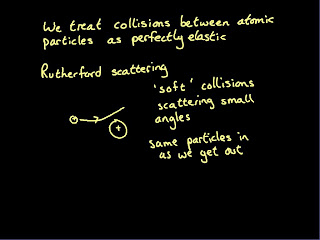 We treat collisions between atomic
particles as perfectly elastic
Rutherford scattering
'soft' collisions
scattering small
angles
+
same particles in
as we get out